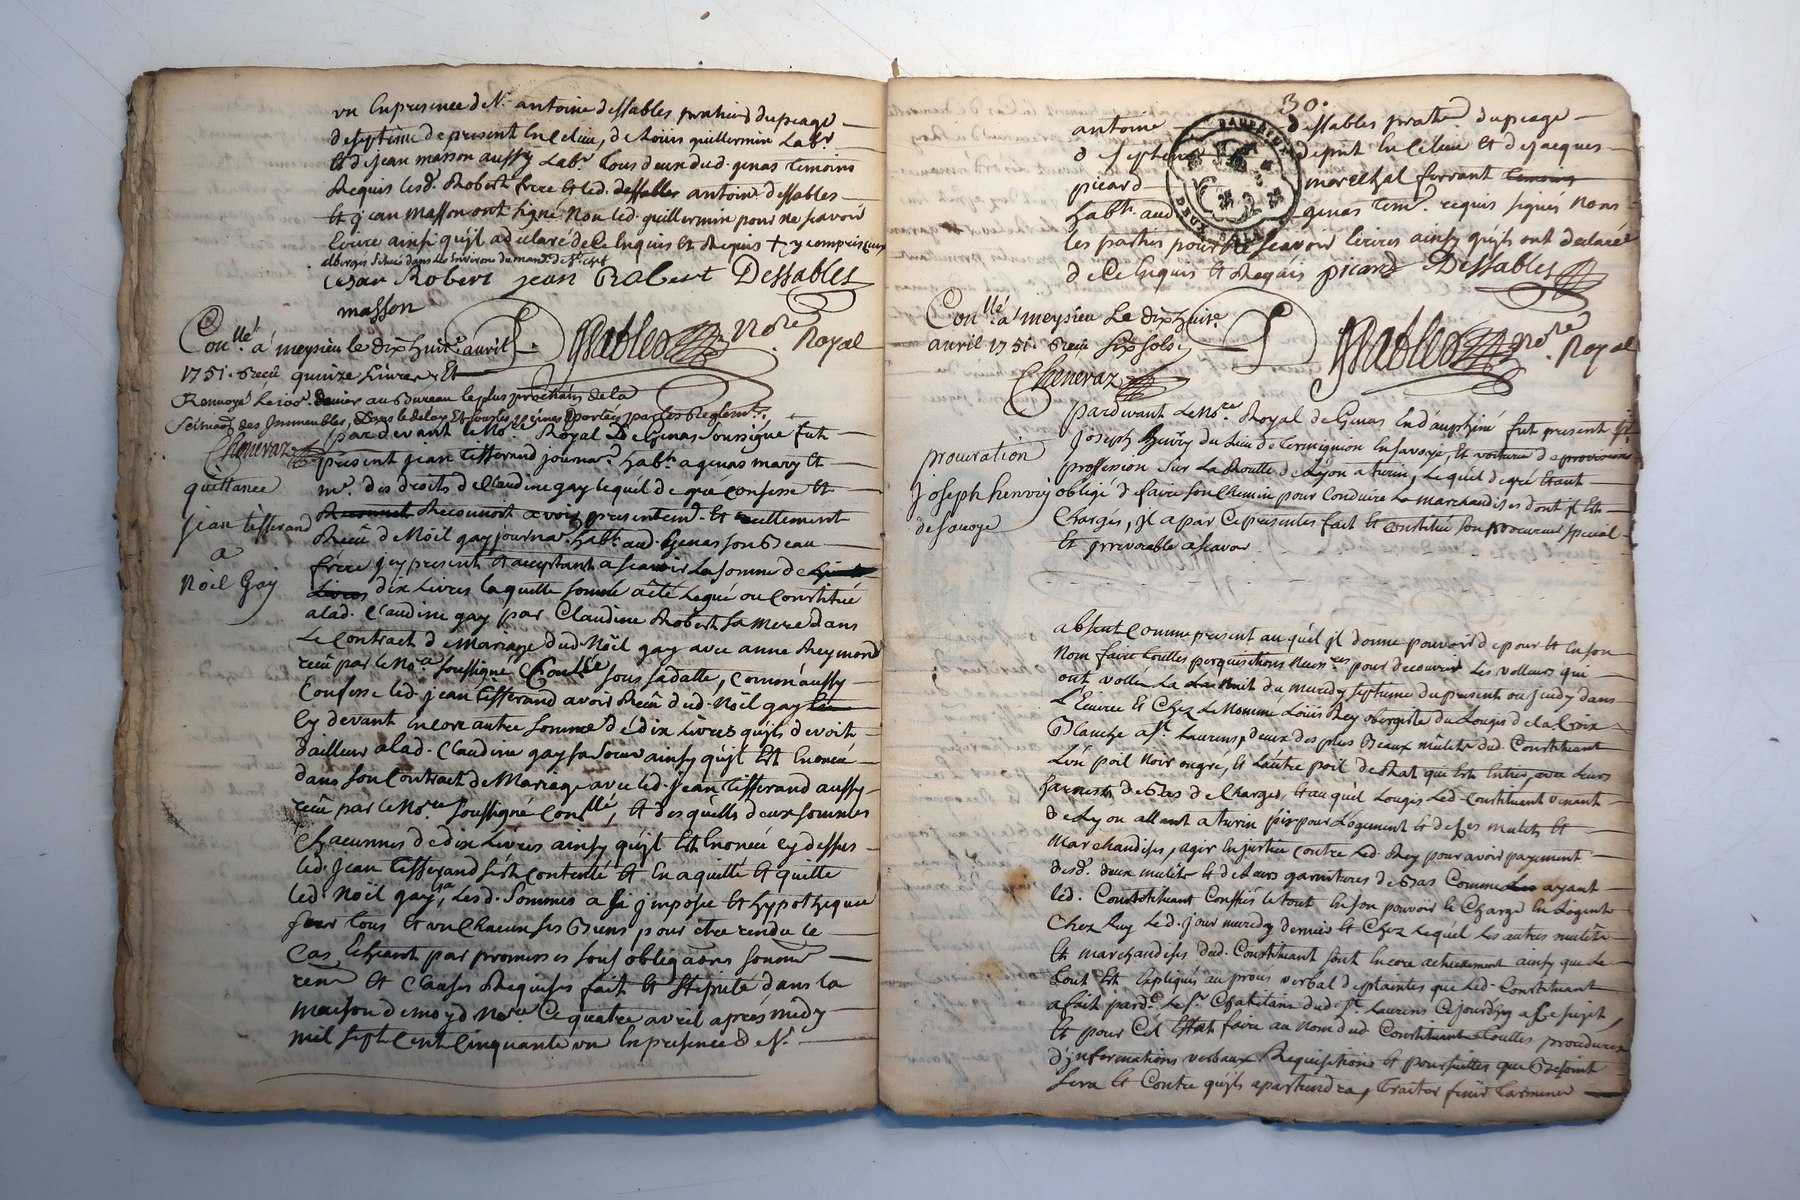 un En presence de Sr. antoine dessables pratticien du peage
de septeme de present En ce lieu, de Louis guillermin Labr.
Et de jean masson aussy Labr. tous deux dud. genas temoins
Requis lesd. Robert frere Et led. antoine dessables
Et jean Masson ont signé Non led. guillermin pour ne scavoir
Ecrire ainsi qu'il a declaré de ce Enquis Et Requis + y compris
Cesar Robert jean Robert Dessables
masson
Conllé. a meysieu le dix huit. avril
Nore. Royal
1751. Receu quinze Livres Et
Renvoyé Le 100e. denier au Bureau le plus prochain de la
scituaon des Immeubles, Dans le delay Et sous les peines portées par les Reglemts.
Cheneraz
pardevant le Nore. Royal De Genas soussigné fut
present jean tisserand journar. habt. a genas mary Et
mr. des droits de Claudine gay lequel de gré confesse Et
quittance
jean tisserand
a
Noël Gay
Reconnoit avoir presentemt. Et reellement
Receu de Noël gay journar. habt. aud. Genas son Beau
frere jcy present Et acceptant a scavoir La somme de
dix Livres laquelle somme a été Leguée ou Constituée
a lad. Claudine gay par Claudine Robert sa Mere dans
Le Contract de Mariage dud. Noël gay avec anne Reymond
receu par le Nore. soussigné Conllé sous sa datte, Comme aussy
Confesse led. jean tisserand avoir Receu dud. Noël gay
Cy devant Encore autre somme de dix Livres qu'il devoit
d'ailleur a lad. Claudine gay sa soeur ainsy qu'jl Est Enoncé
dans son Contract de Mariage avec led. jean tisserand aussy
receu par le Nore. soussigné Conllé, Et desquelles deux sommes
Chacunnes de dix Livres ainsy qu'jl Est Enoncé cy dessus
led. jean tisserand s'est contenté Et En a quitté Et quitte
led. Noël gay, Lesd. Sommes a jmposée Et hypothequée
sur tous Et un Chacun ses Biens pour etre rendue le
Cas Echeant par promesses sous obligaons soumn
renn Et Clauses Requises fait Et Stipulé dans la
maison de moyd. Nore. Ce quatre avril aprés midy
mil sept cent Cinquante un En presence de Sr.
30.
antoine dessables pratten. du peage
de septeme depnt En Ce lieu Et de jacques
picard marechal ferrant
habt. aud. genas temr. requis signés Non
les parties pour ne scavoir Ecrires ainsy qu'ils ont declaré
de Ce Enquis Et Requis picard Dessables
Conllé. a meysieu Le dix huit.
avril 1751 Receu six sols
Nore. Royal
Cheneraz
pardevant Le Nore. Royal de Genas En dauphiné fut present
joseph henry du Lieu de Termignion En savoye, Et voiturier de
profession sur La Routte de Lyon a turin, Lequel de gré Etant
procuration
joseph henry
de savoye
obligé de faire son Chemin pour Conduire La marchandises dont jl Est
Chargés, jl a par Ces presentes fait Et constitué son procureur special
Et jrrevocable a scavoir
absent Comme present auquel jl donne pouvoir de pour Et En son
Nom faire touttes perquisitions Necesres pour decouvrir Les volleurs qui
ont vollés La Nuit du mercredy septieme du present au jeudy dans
L'Ecurie Et Chez Le Nommé Loüis Rey obergiste du Logis de la Croix
Blanche a St. Laurens, deux des plus Beaux mulets dud. Constituant
L'un poil Noir ongre, Et L'autre poil de Rat qui Est Entier, avec Leurs
harnois de Bas de Charges, Et auquel Logis Led. Constituant venant
de Lyon allant a turin pris pour Logement Et de ses mulets Et
Marchandises, agir En justice contre Led. Rey pour avoir payement
desd. deux mulets Et de Leurs garnitures de Bas Comme ayant
led. Constituant Confiés le tout En son pouvoir
Chez Luy Led. jour mercredy dernier Et Chez Lequel Les autres mulets
Et marchandises dud. Constituant sont Encore actuellement ainsy que Le
tout Est Expliqués au procés verbal de plaintes que Led. Constituant
a fait pardt. Le Sr. Chatelain dud. St. Laurens Cejourdhuy a Ce sujet,
Et pour Cet Effet faire au Nom dud. Constituant touttes procedures
d'jnformations verbaux Requisitions Et poursuittes que Besoint
sera Et Contre qu'jl apartiendra, Traiter finir Terminer